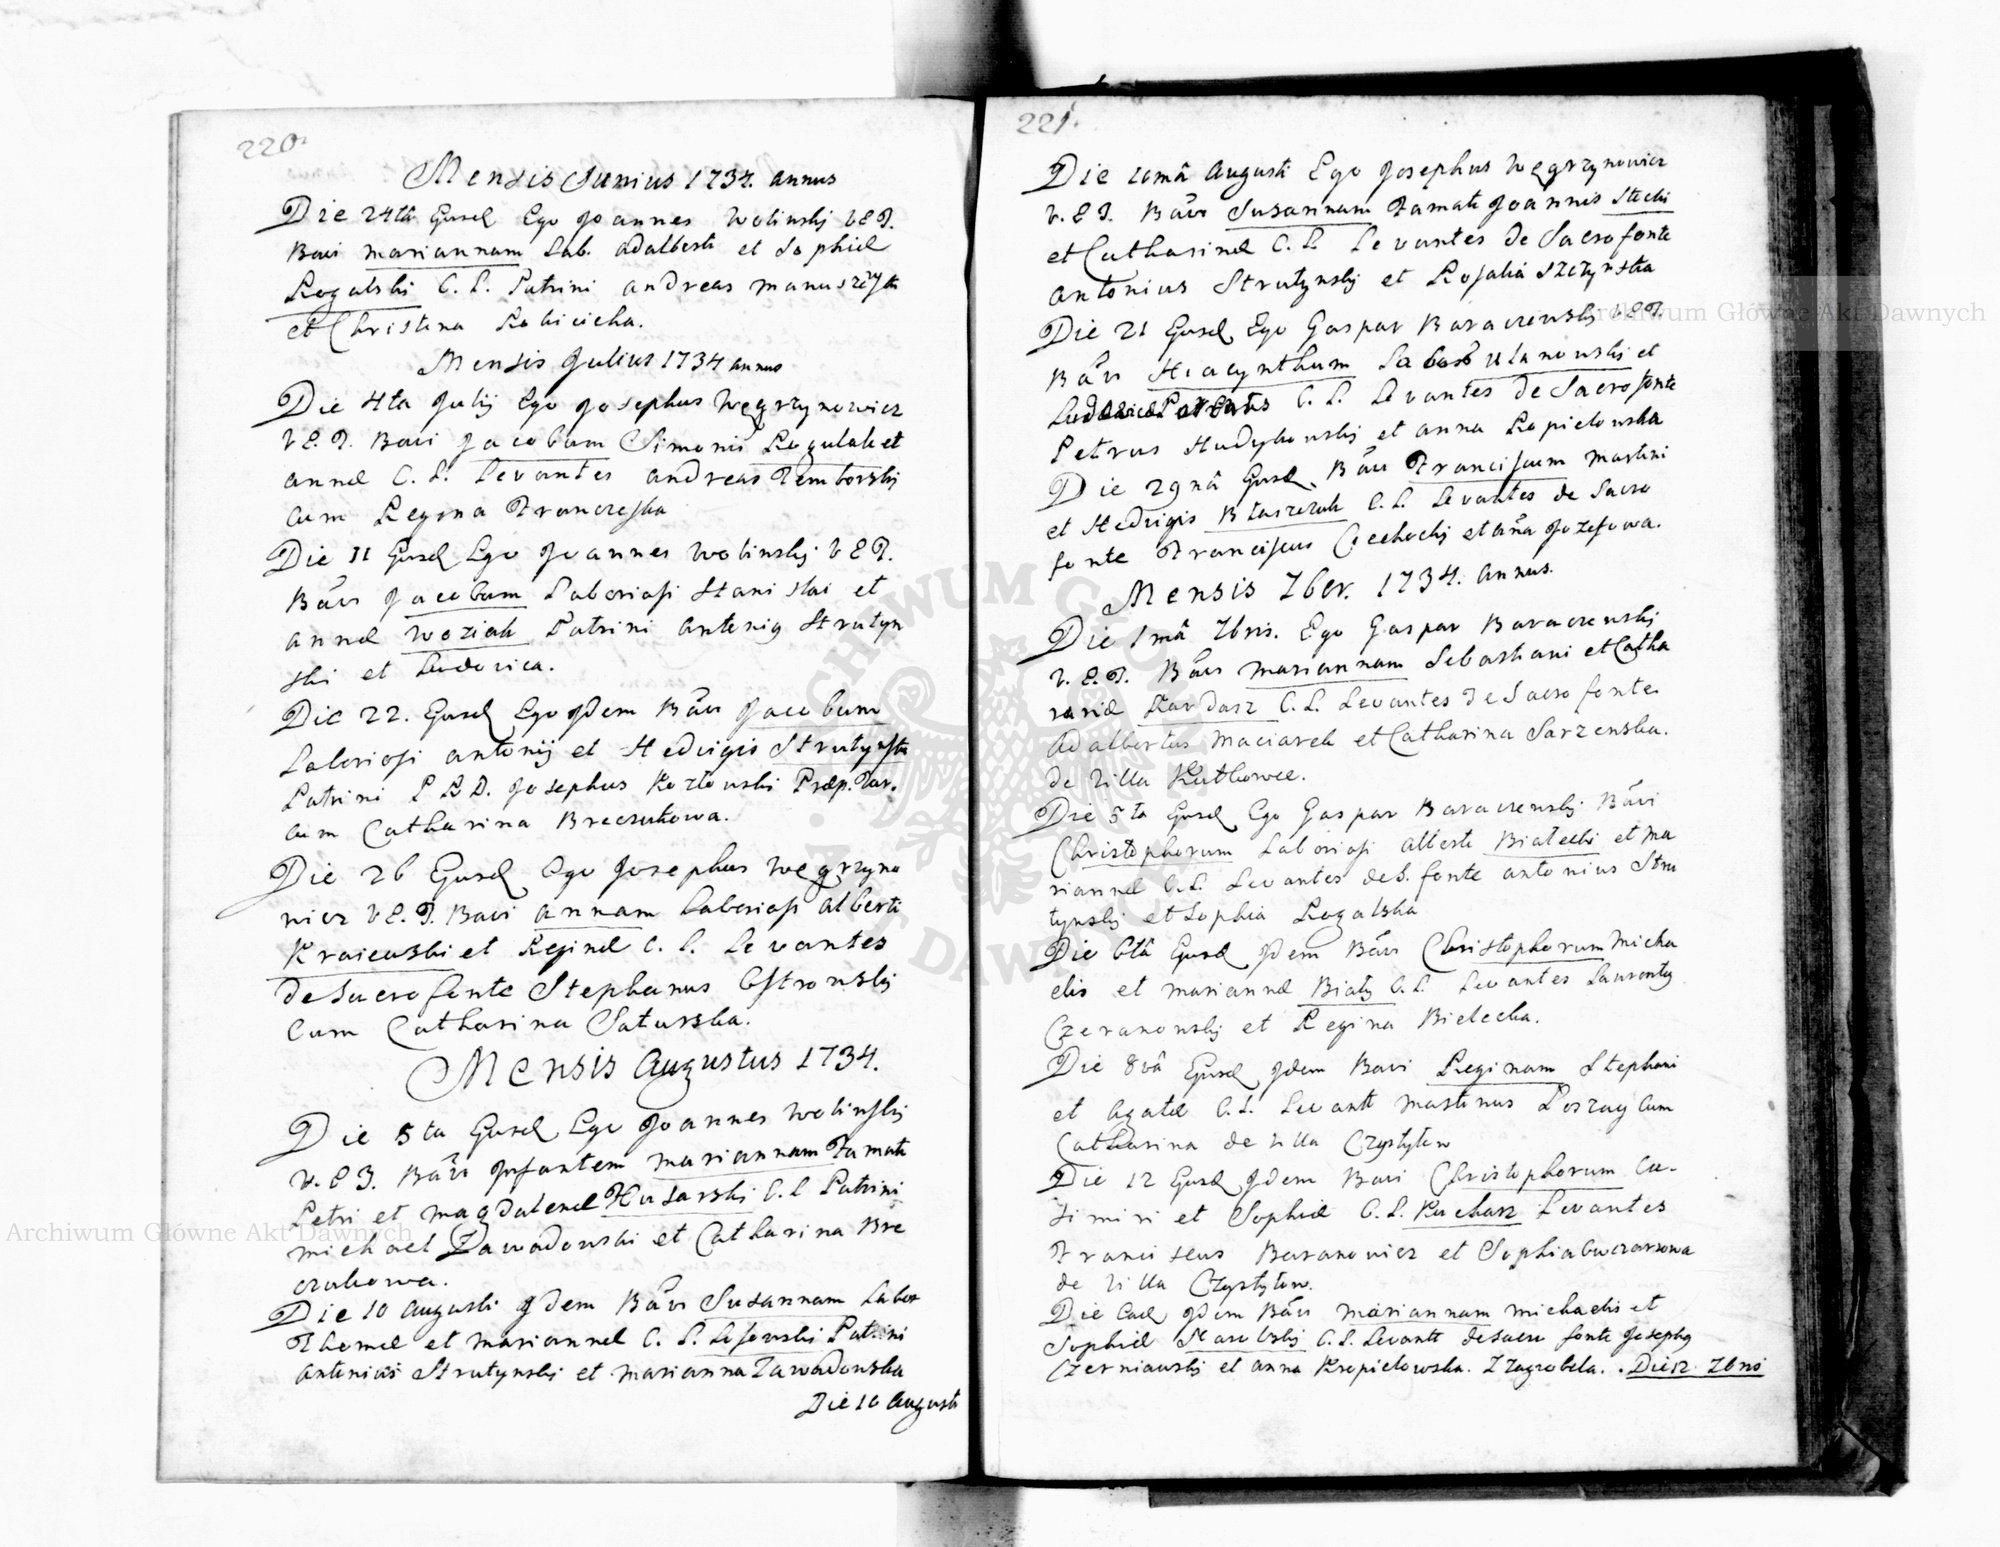 220.
Mensis Junius 1734. annus
Die 24ta Eiusd Ego Joannes Wolinskj V.E.T.
Bavi Mariannam Lab. Adalberti et Sophiæ
Rogalski C. L. Patrini Andreas
et Christina
Mensis Julius 1734 annus
Die 4ta Julij Ego Josephus Węgrzynowicz
V.E.T. Bavi Jacobum Simonis Rogulak et
Annæ C. L. Levantes Andreas Zemborskj
Cum Regina
Die 11 Eiusd Ego Joannes Wolinskj V E T.
Bavi Jacobum Laboriosi Stanislai et
Annæ Woziak Patrini Antonig Strutyn
ski et Ludovica.
Die 22. Eiusd Ego Idem Bavi Jacobum
Laboriosi Antonij et Hedvigis Strutynski
Patrini P R D. Josephus Kozlowski Præp. Tar.
cum Catharina Breczukowa.
Die 26 Eiusd Ego Josephus Węgrzyno
wicz V.E.T. Bavi Annam Laboriosi Alberti
Kraiewski et Reginæ C. L. Levantes
de Sacro fonte Stephanus Ostrowskj
Cum Catharina Saturska.
Mensis Augustus 1734.
Die 5ta Eiusd Ego Joannes Wolinskj
V.E.T. Bavi Infantem Mariannam Famati
Petri et Magdalenæ Husarski C.L Patrini
Michael Zawadowski et Catharina Bre
czukowa.
Die 10 Augusti Idem Bavi Susannam Labor
Thomæ et Mariannæ C. L. Patrini
Antonius Strutynskj et Marianna Zawadowska
Die 10 Augusti
221.
Die 10mâ Augusti Ego Josephus Węgrzynowicz
V.E.T. Bavi Susannam Famati Joannis Stecki
et Catharinæ C. L. Levantes de Sacro fonte
Antonius Strutynskj et Rosalia
Die 21 Eiusd Ego Gaspar Baraczewskj V.E.T.
Bavi Hiacynthum Ulanowski et
C. L. Levantes de Sacro fonte
Petrus Hudykowskj et Anna Kopielowska
Die 29nâ Eiusd. Bavi Franciscum Martini
et Hedvigis Błaszczak C. L. Levantes de Sacro
fonte Franciscus et Anna Jozefowa.
Mensis 7ber. 1734. Annus.
Die 1mâ 7bris. Ego Gaspar Baraczewskj
V.E.T. Bavi Mariannam Sebastiani et Catha
rinæ Kardasz C.L. Levantes de Sacro fonte
Adalbertus Maciarek et Catharina Sarzenska.
de Villa Kutkowce.
Die 5ta Eiusd Ego Gaspar Baraczewskj Bavi
Christophorum Laboriosi Alberti Białecki et Ma
riannæ C.L. Levantes de S. fonte Antonius Stru
tynskj et Sophia Rogalska
Die 6tâ Eiusd Idem Bavi Christophorum Micha
elis et Mariannæ Biały C.L. Levantes Laurentij
Czeranowskj et Regina Bielecka.
Die 8vâ Eiusd Idem Bavi Reginam Stephani
et Agatæ C.L. Levant Martinus Cum
Catharina de Villa Czystylow
Die 12 Eiusd Idem Bavi Christophorum Ca-
simiri et Sophiæ C.L. Kucharz Levantes
Franciscus Baranowicz et Sophia Owczarzowa
de Villa Czystylow.
Die Ead Idem Bavi Mariannam Michaelis et
Sophiæ C.L. Levant de Sacro fonte Josephg
Czerniawskj et Anna Kropielowska. Z Zagrobela. . Die 12 7bris
Archiwum Główne Akt Dawnych
Archiwum Główne Akt Dawnych
ARCHIWUM GŁÓWNE AKT DAWNYCH